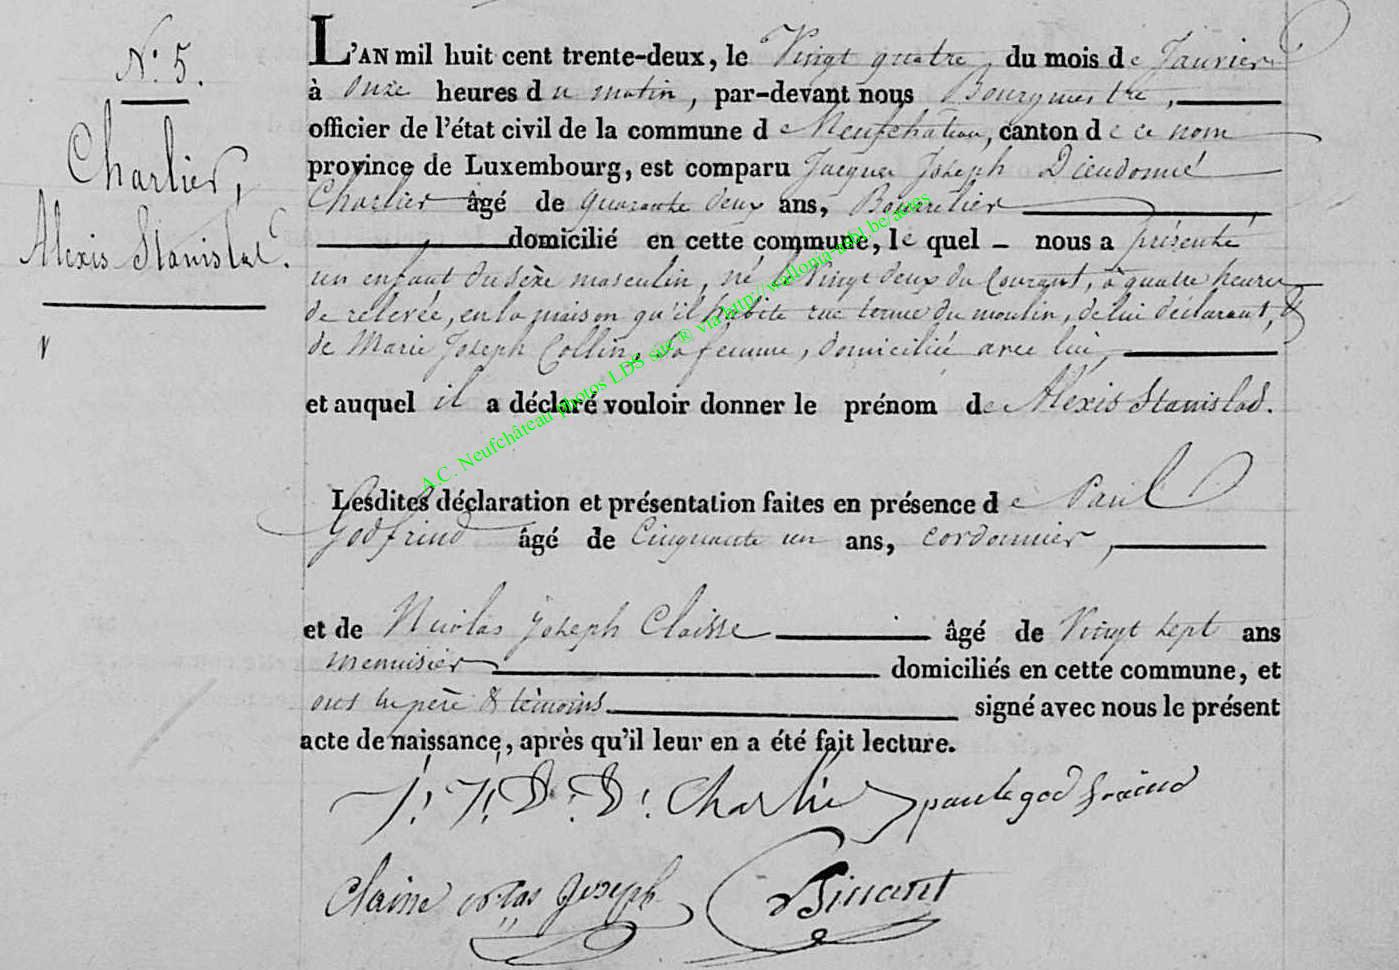 N.° 5.
Charlier,
Alexis Stanislas.
L'AN mil huit cent trente-deux, le Vingt quatre, du mois de Janvier
à onze heures du matin, par-devant nous Bourgmestre,
officier de l'état civil de la commune de Neufchateau, canton de ce nom
province de Luxembourg, est comparu Jacques Joseph Dieudonné
Charlier âgé de quarante deux ans, Bourrelier
domicilié en cette commune, le quel nous a présenté
un enfant du sexe masculin, né le Vingt deux du Courant, à quatre heures
de relevée, en la maison qu'il habite rue du moulin, de lui déclarant, &
de Marie Joseph Collin, sa femme, domiciliée avec lui,
et auquel il a déclaré vouloir donner le prénom de Alexis Stanislas.
Lesdites déclaration et présentation faites en présence de Paul
Godfrind âgé de Cinquante un ans, cordonnier,
et de Nicolas Joseph Claisse âgé de Vingt sept ans
menuisier domiciliés en cette commune, et
ont le père & témoins signé avec nous le présent
acte de naissance, après qu'il leur en a été fait lecture.
J. J. D. D. Charlier
Joseph
A.C. Neufchâteau photos LDS slc ® via http://wallonia-asbl.be/actes